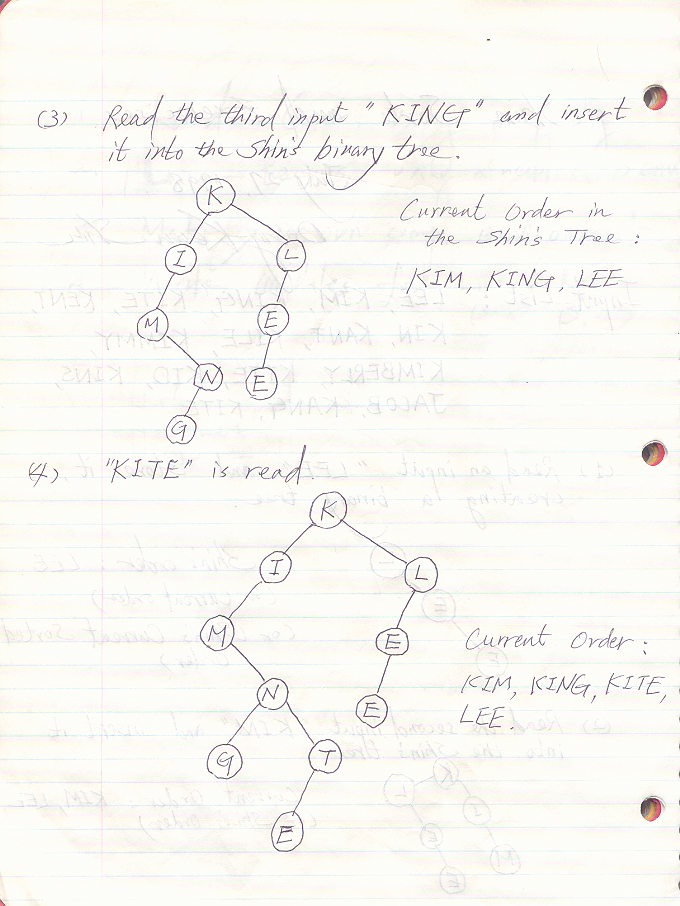 (3) Read the third input "KING" and insert
it into the Shin's binary tree.
K
Current Order in
the Shin's Tree :
I L
KIM, KING, LEE
M E
N E
G
(4) "KITE" is read.
K
I L
M E
Current Order :
KIM, KING, KITE,
LEE.
N E
G T
E